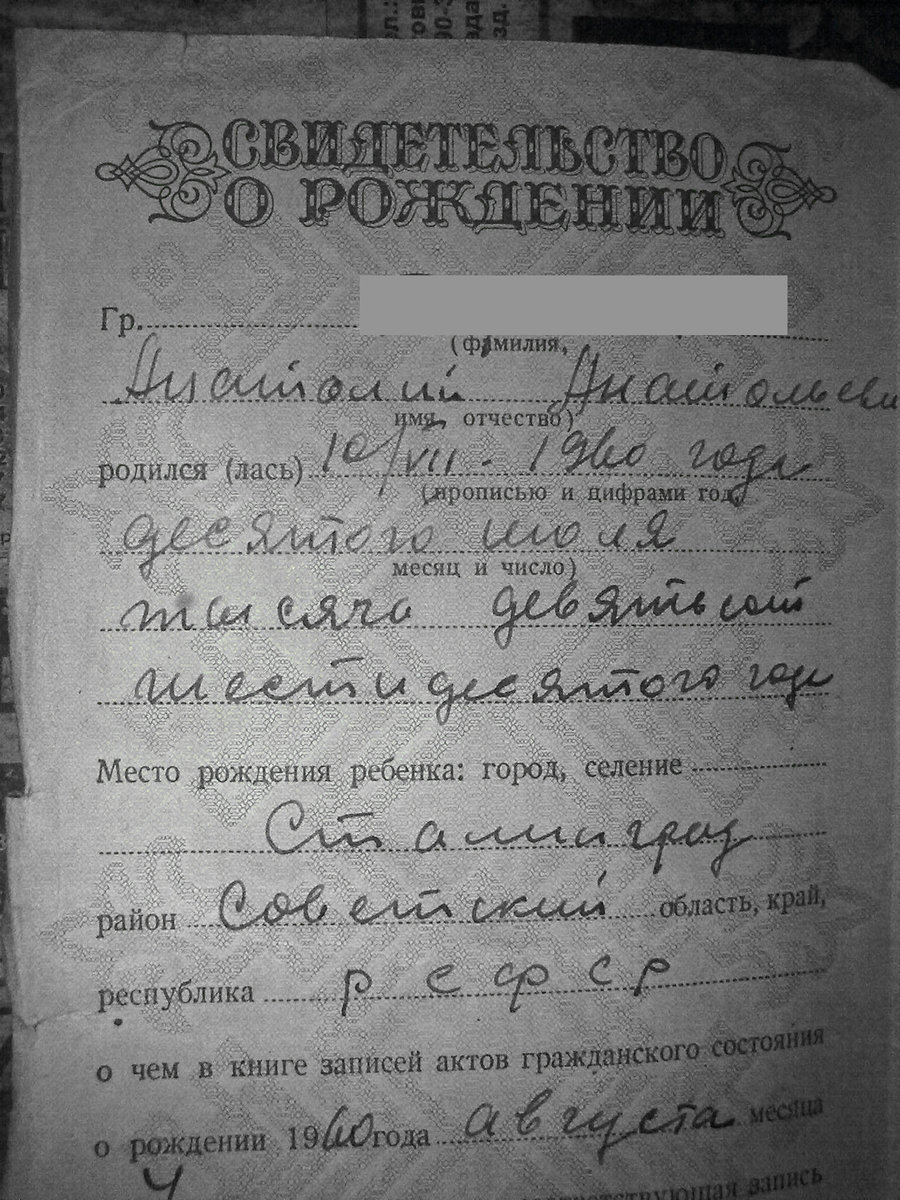 СВИДЕТЕЛЬСТВО
О РОЖДЕНИИ
Гр.
(фамилия,
Анатолий Анатольеви
имя, отчество)
родился (лась) 10/VII - 1960 года
(прописью и цифрами год,
десятого июля
месяц и число)
тысяча девятьсот
шестидесятого года
Место рождения ребенка: город, селение
Сталинград
район Советский область, край,
республика РСФСР
о чем в книге записей актов гражданского состояния
о рождении 1960 года августа месяца
4 запись